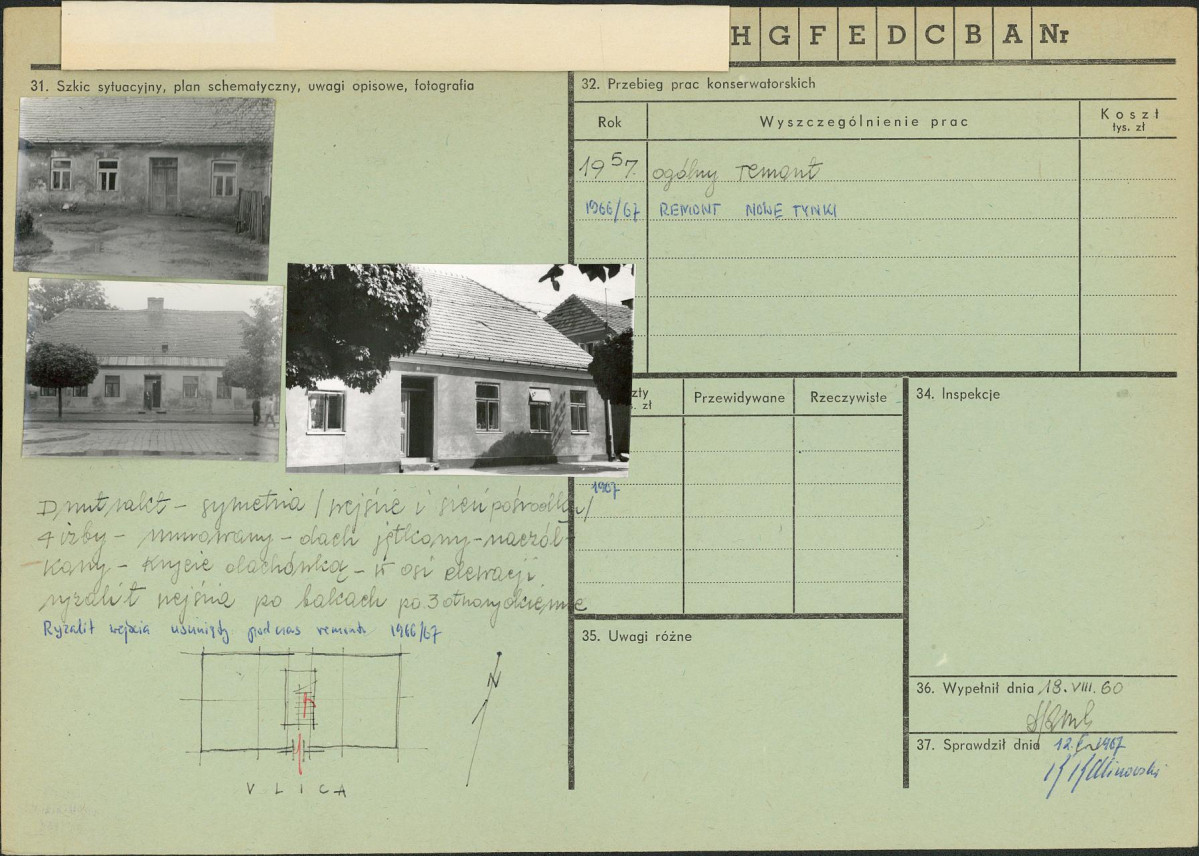 H G F E D C B A Nr
31. Szkic sytuacyjny, plan schematyczny, uwagi opisowe, fotografia
32. Przebieg prac konserwatorskich
Rok
Wyszczególnienie prac
Koszt
tys. zł
1957. ogólny remont
1966/67 REMONT NOWE TYNKI
zty
. zł
Przewidywane
Rzeczywiste
1967
34. Inspekcje
Dwutrakt – symetria / wejście i sień pośrodku /
4 izby – murowany – dach jętkowy – naczół-
kowy – krycie dachówką – w osi elewacji
ryzalit wejścia po bokach po 3 otwory okienne
Ryzalit wejścia usunięty podczas remontu 1966/67
N
VLICA
35. Uwagi różne
36. Wypełnił dnia 18.VIII.60
37. Sprawdził dnia 12. 1967